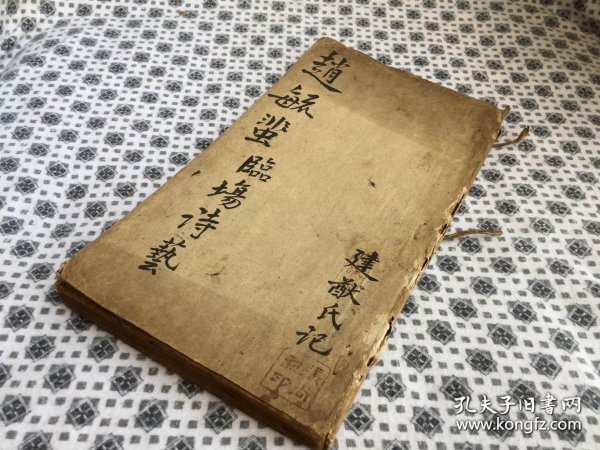 趙毓蜚臨場待藝
建猷氏记
印
孔夫子旧书网
www.kongfz.com